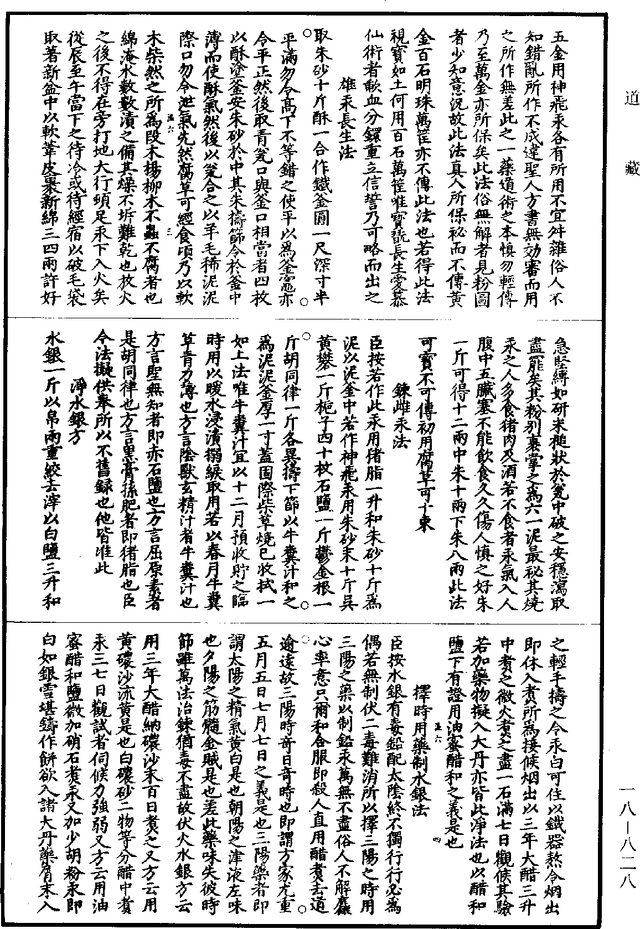 道藏
五金用神飛汞各有所用不宜舛雜俗人不
知錯亂所作不成違聖人方書無効審而用
之所作無差此之一藥道術之本慎勿輕傳
乃至萬金亦所保矣此法俗無解者見粉圖
者少知意況故此法真人所保秘而不傳黃
金百石明珠萬筐亦不傳此法也若得此法
視寶如土何用百石萬筐唯寶翫長生愛慕
仙術者歃血分鐶重立信誓乃可略而出之
雄汞長生法
取朱砂十斤酥一合作鐵釜圓一尺深寸半
平滿勿令高下不等錯之使平以爲釜竈亦
令平正然後取青瓮口與釜口相當者四枚
以酥塗釜安朱砂於中其朱擣篩令於釜中
薄而使酥氣然後以瓮合之以羊毛稀泥泥
際口勿令泄氣先然腐草可經食頃乃以軟
木柴然之所爲段木楊柳木不蟲不腐者也
綿淹水數數漬之備其燥不坼難乾也放火
之後不得在旁打地大行頓足汞下入火矣
從辰至午當下之待冷或待經宿以破毛袋
取著新盆中以軟葦皮裹新綿三四兩許好
急堅縛如研米槌狀於瓮中破之安穩瀉取
盡罷矣其粉別裹掌之爲六一泥最祕其燒
汞之人多食猪肉及酒若不食者汞氣入人
腹中五臟塞不能飲食久久傷人慎之好朱
一斤可得十二兩中朱十兩下朱八兩此法
可寶不可傳初用腐草可十束
鍊雌汞法
臣按若作此汞用猪脂一升和朱砂十斤爲
泥以泥金中若作神飛汞用朱砂末十斤吳
黃礬一斤梔子四十枚石鹽一斤鬱金根一
斤胡同律一斤各異擣下篩以牛糞汁和之
爲泥泥釜厚一寸蓋固際柴草燒已收拭一
如上法唯牛糞汁宜以十二月預收貯之臨
時用以暖水浸漬搦緱取用若以春月牛糞
草青力薄也方言陰獸玄精汁者牛糞汁也
方言聖無知者即赤石鹽也方言屈原素者
是胡同律也方言黑膏孫肥者即猪脂也臣
今法擬供奉所以不舊録也他皆准此
淨水銀方
水銀一斤以帛兩重絞去滓以白鹽三升和
之輕手擣之令汞白可住以鐵器熬令烟出
即休入煮所爲接候烟出以三年大醋三升
中煮之微火煮之盡一石滿七日觀候其驗
若加藥物擬入大丹亦皆此淨法也以醋和
鹽下有證用油蜜醋和之義是也
擇時用藥制水銀法
臣按水銀有毒鉛配太陰終不獨行行必爲
偶若無制伏二毒難消所以擇三陽之時用
三陽之藥以制鉛汞萬無不盡俗人不解麤
心率意只爾和合服即殺人直用醋煮去道
逾遠故三陽時奇日奇時也即謂方家尤重
五月五日七月七日之義是也三陽藥者即
謂太陽之精氣黃白是也朝陽之津液左味
也夕陽之筋髓金賊是也差此藥味失彼時
節雖萬法治鍊猶毒不盡故伏火水銀方云
用三年大醋納磠沙末百日煮之又方云用
黃礞沙流黃是也白磠砂二物等分醋中煮
汞三七日觀試者伺候力強弱又方云用油
蜜醋和鹽微加硝石煮汞又加少胡粉汞即
白如銀雪堪鑄作餅欲入諸大丹藥屑末入
一八—八二八